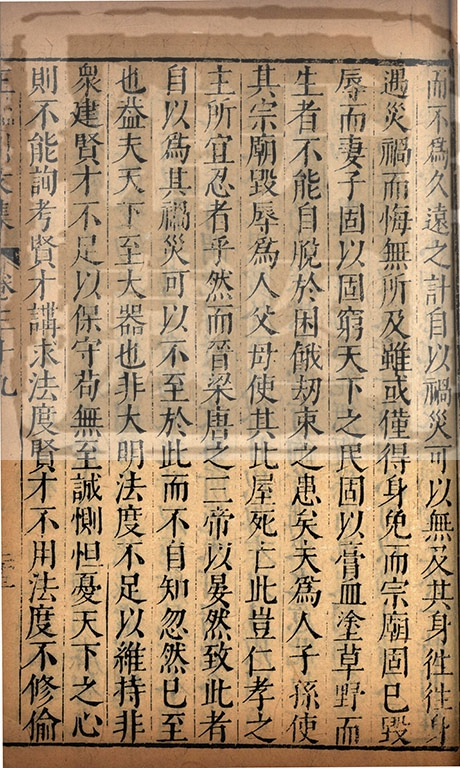 而不為久遠之計自以禍災可以無及其身徃徃身
遇災禍而悔無所及雖或僅得身免而宗廟固已毀
辱而妻子固以固窮天下之民固以膏血塗草野而
生者不能自脫於困餓刼束之患矣夫為人子孫使
其宗廟毀辱為人父母使其比屋死亡此豈仁孝之
主所宜忍者乎然而晉梁唐之三帝以晏然致此者
自以為其禍災可以不至於此而不自知忽然已至
也益夫天下至大器也非大明法度不足以維持非
衆建賢才不足以保守苟無至誠惻怛憂天下之心
則不能詢考賢才講求法度賢才不用法度不修偷
文集 卷三十九